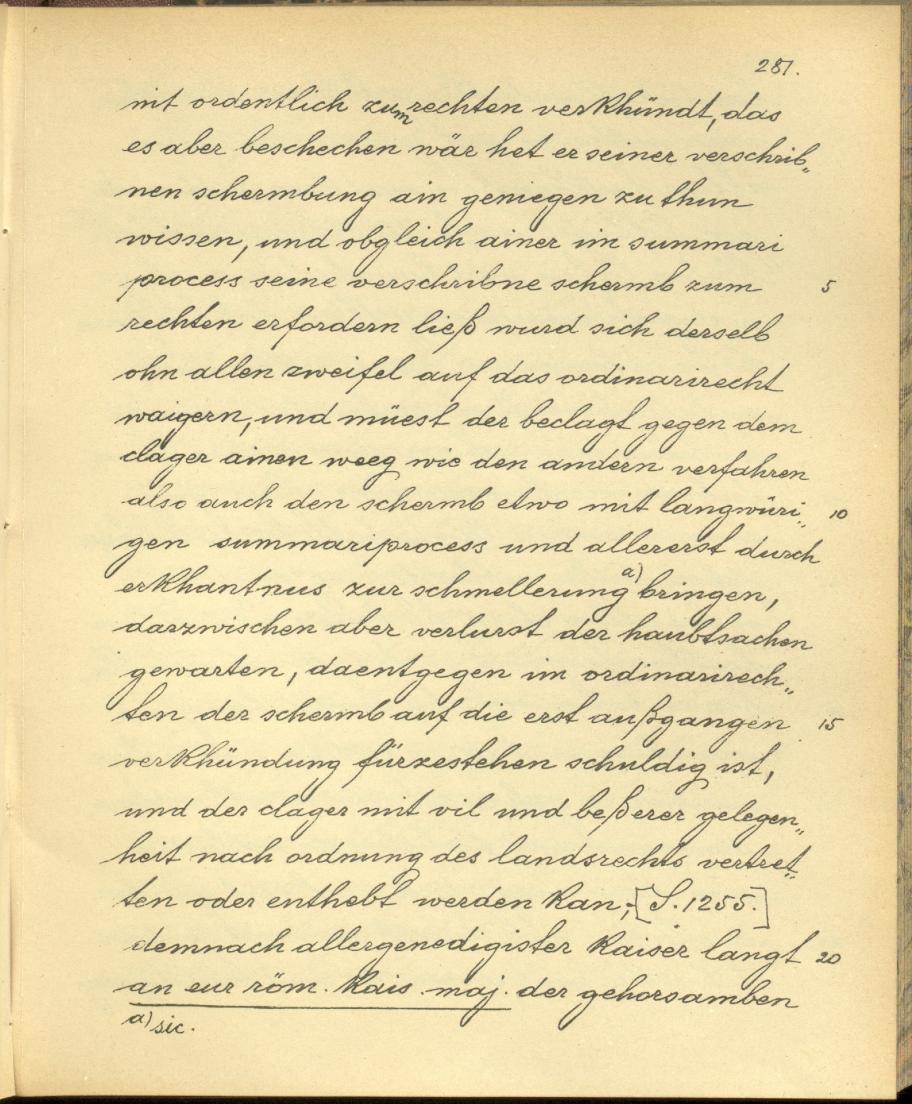 281.
nit ordentlich zum rechten verkhündt, das
es aber beschechen wär het er seiner verschrib„
nen schermbung ain geniegen zu thun
wissen, und obgleich ainer im summari
process seine verschribne schermb zum 5
rechten erfordern ließ wurd sich derselb
ohn allen zweifel auf das ordinarirecht
waigern, und müest der beclagt gegen dem
clager ainen weeg wie den andern verfahren
also auch den schermb etwo mit langwüri„ 10
gen summariprocess und allererst durch
erkhantnus zur schmellerung a) bringen,
darzwischen aber verlurst der haubtsachen
gewarten, daentgegen im ordinarirech„
ten der schermb auf die erst außgangen 15
verkhündung fürzestehen schuldig ist,
und der clager mit vil und beßerer gelegen„
heit nach ordnung des landsrechts vertret„
ten oder enthebt werden kan; [S. 1255.]
demnach allergenedigister kaiser langt 20
an eur röm. kais. maj. der gehorsamben
a) sic.